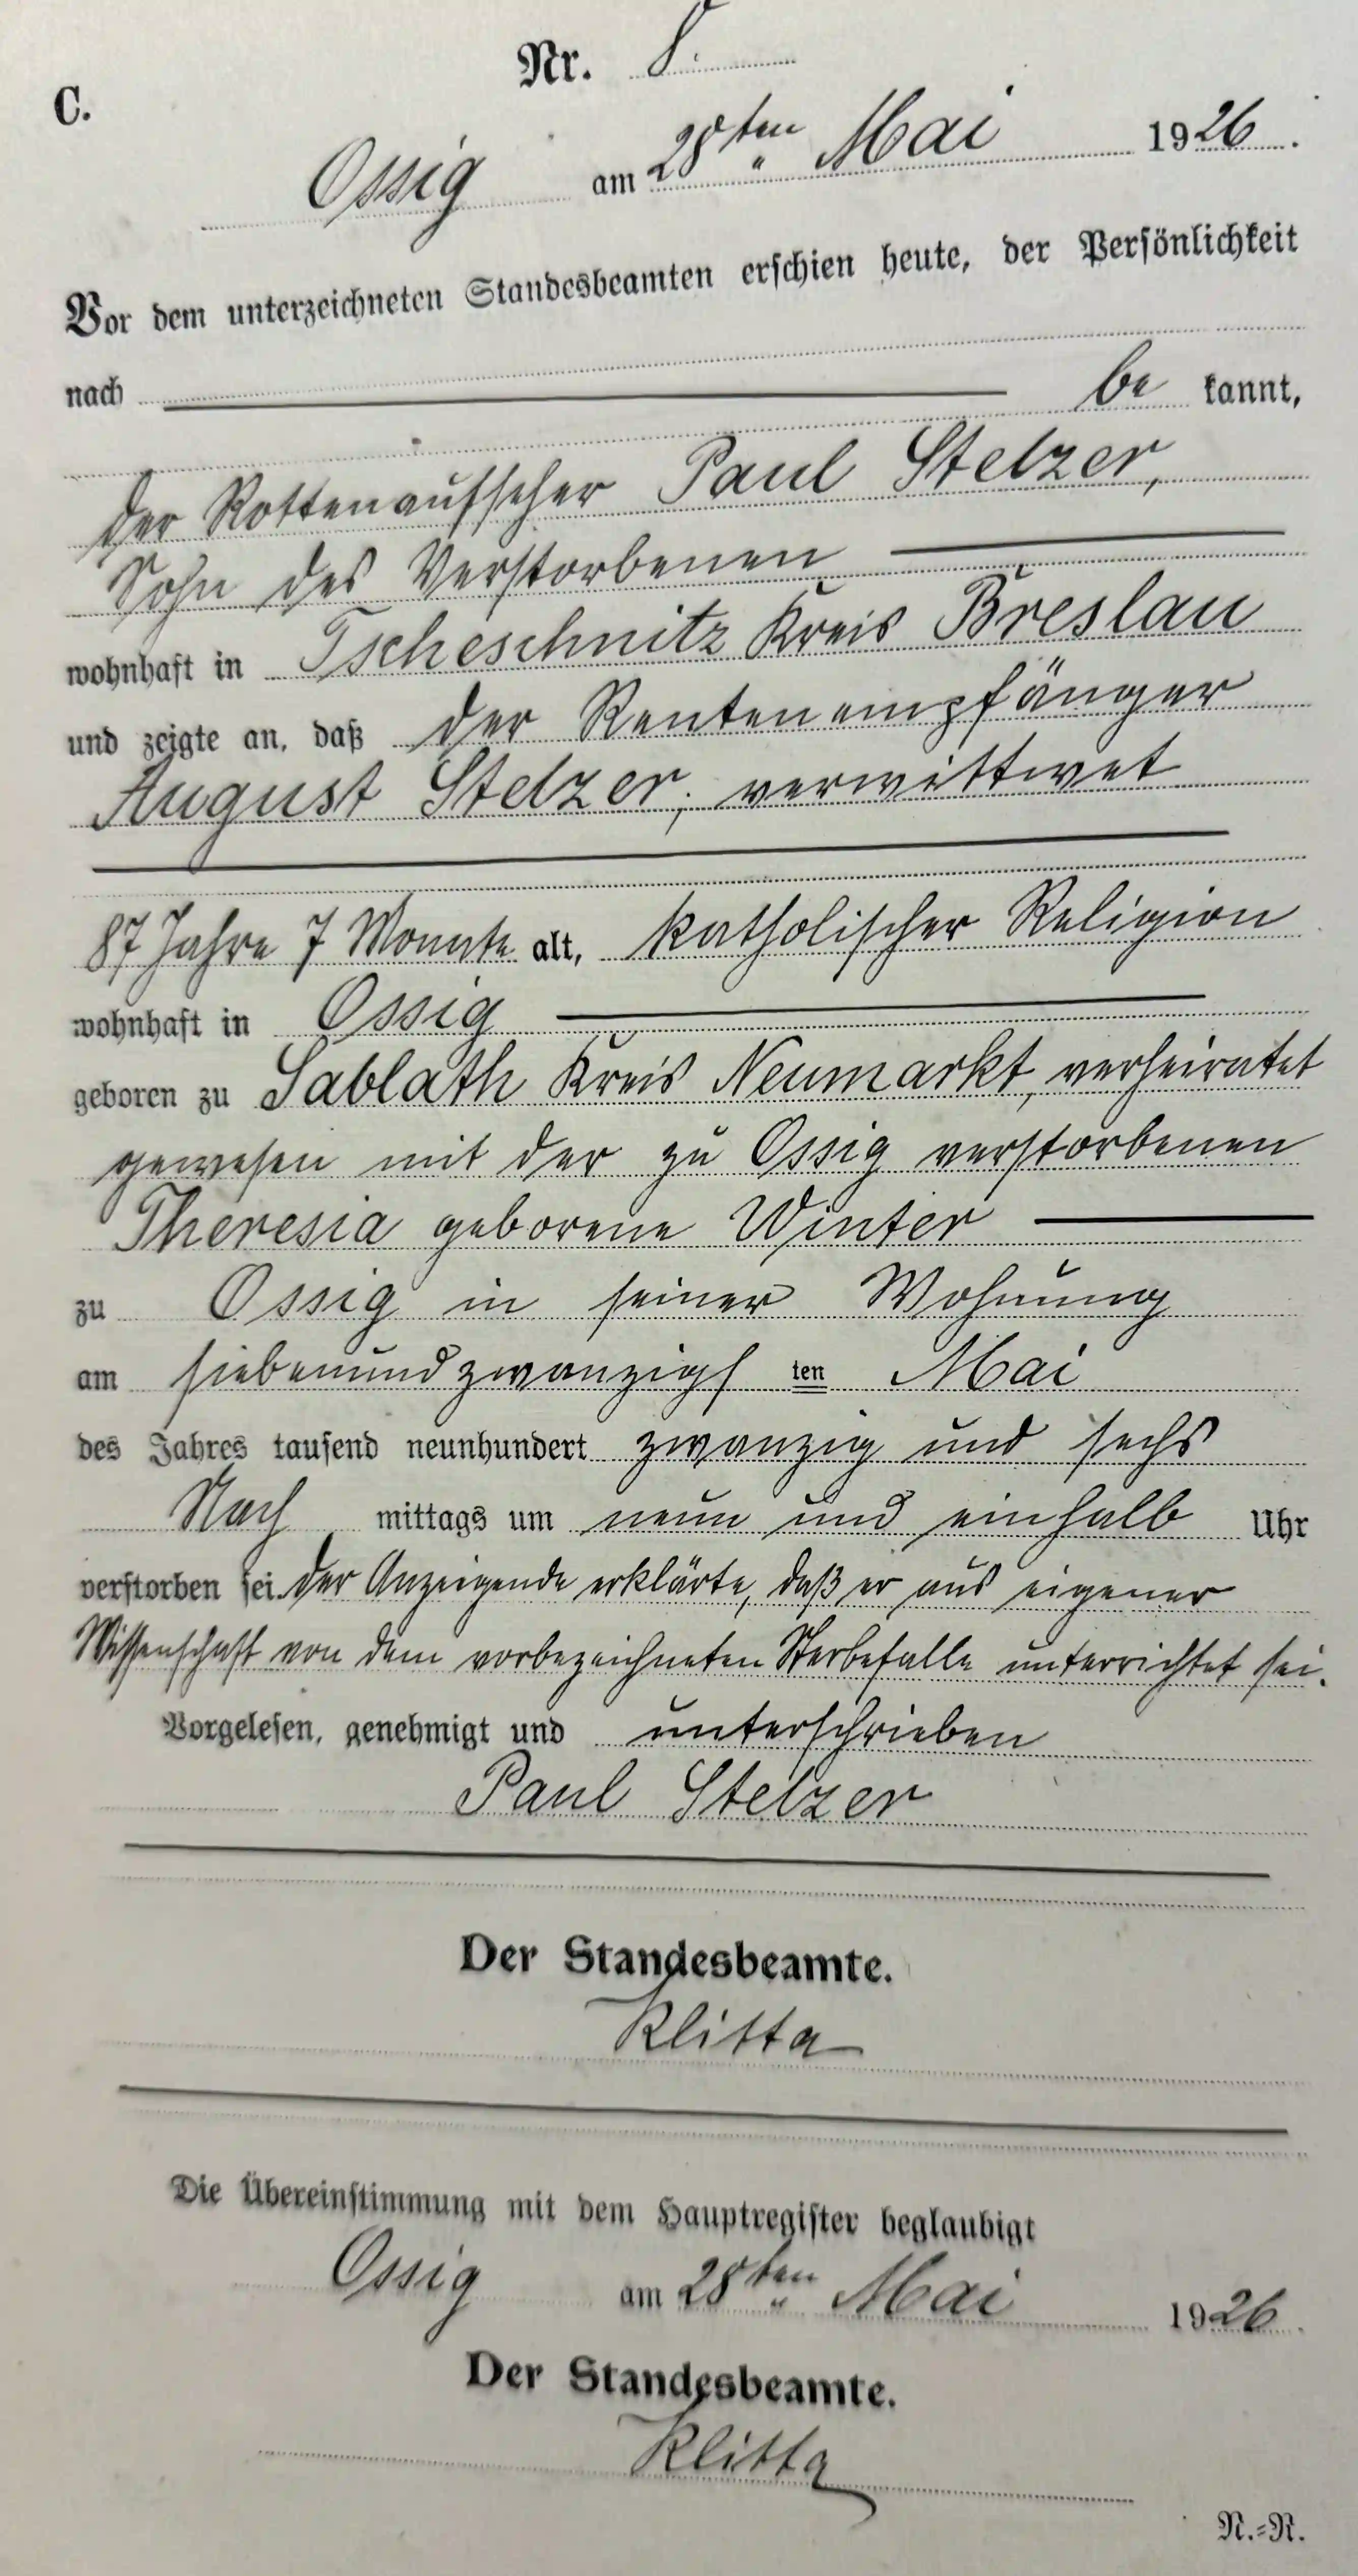 Nr. 8.
C.
Ossig am 28ten Mai 1926.
Vor dem unterzeichneten Standesbeamten erschien heute, der Persönlichkeit
nach be kannt,
der Rottenaufseher Paul Stelzer,
Sohn des Verstorbenen
wohnhaft in Tscheschnitz Kreis Breslau
und zeigte an, daß der Rentenempfänger
August Stelzer, verwittwet
87 Jahre 7 Monate alt, katholischer Religion
wohnhaft in Ossig
geboren zu Sablath Kreis Neumarkt, verheiratet
gewesen mit der zu Ossig verstorbenen
Theresia geborene Winter
zu Ossig in seiner Wohnung
am siebenundzwanzigs ten Mai
des Jahres tausend neunhundert zwanzig und sechs
Nach mittags um neun und einhalb Uhr
verstorben sei. Der Anzeigende erklärte, daß er aus eigener
Wissenschaft von dem vorbezeichneten Sterbefalle unterrichtet sei.
Vorgelesen, genehmigt und unterschrieben
Paul Stelzer
Der Standesbeamte.
Klitta
Die Übereinstimmung mit dem Hauptregister beglaubigt
Ossig am 28ten Mai 1926.
Der Standesbeamte.
Klitta
N.=R.